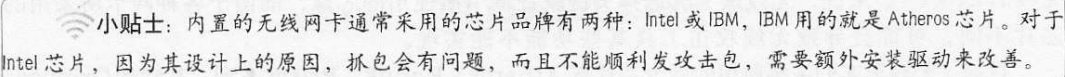 小贴士：内置的无线网卡通常采用的芯片品牌有两种：Intel或IBM，IBM用的就是Atheros芯片。对于
Intel芯片，因为其设计上的原因，抓包会有问题，而且不能顺利发攻击包，需要额外安装驱动来改善。